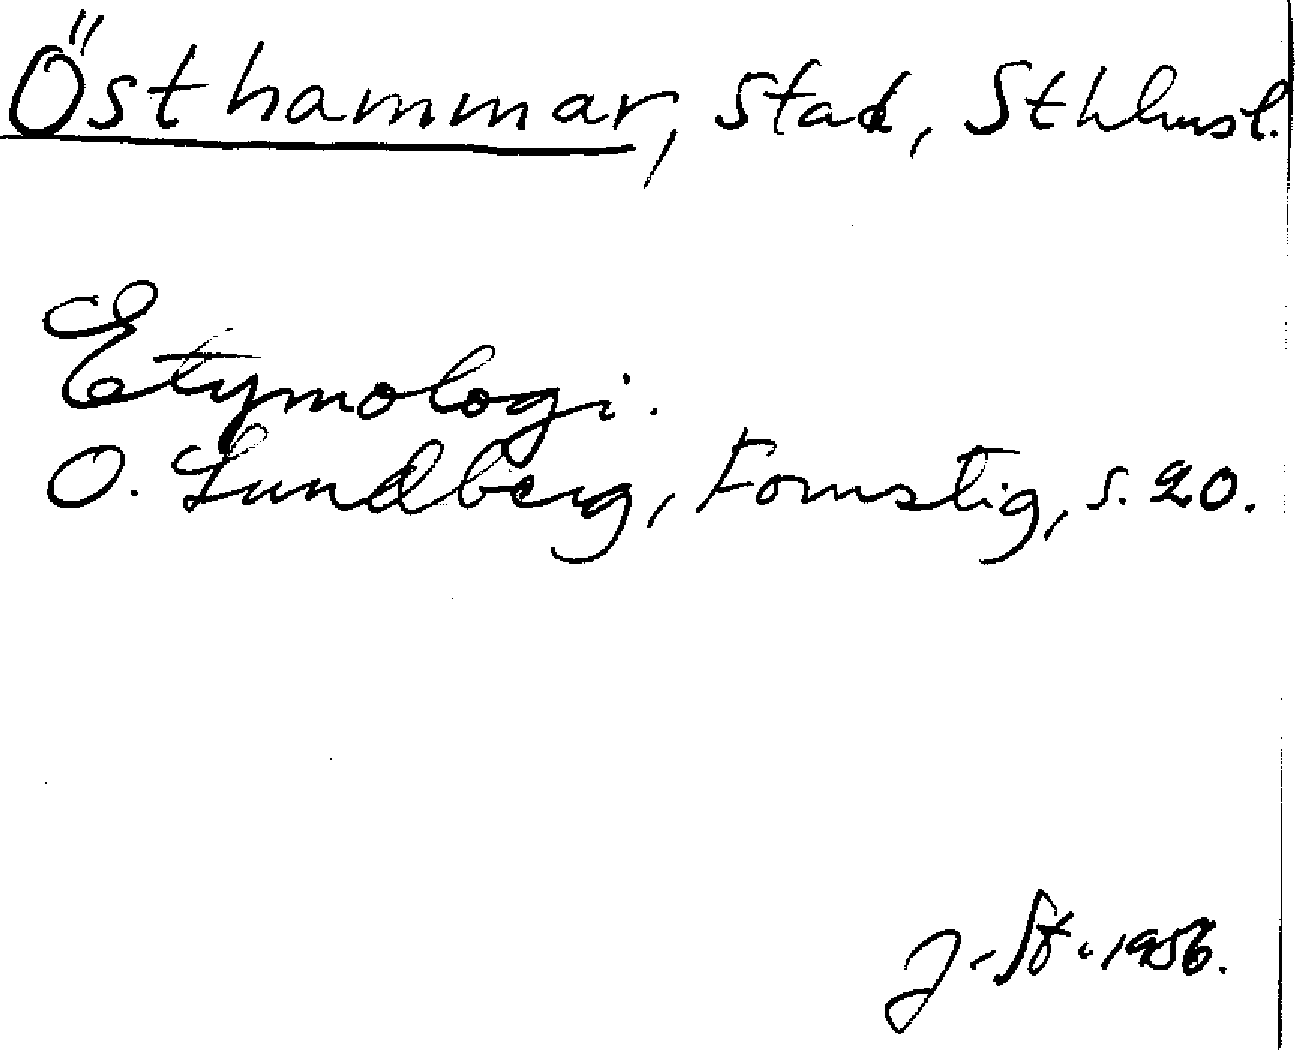 Östhammar, stad, Sthlmsl.
Etymologi.
O. Lundberg, Fornstig, s. 20.
J-St. 1956.